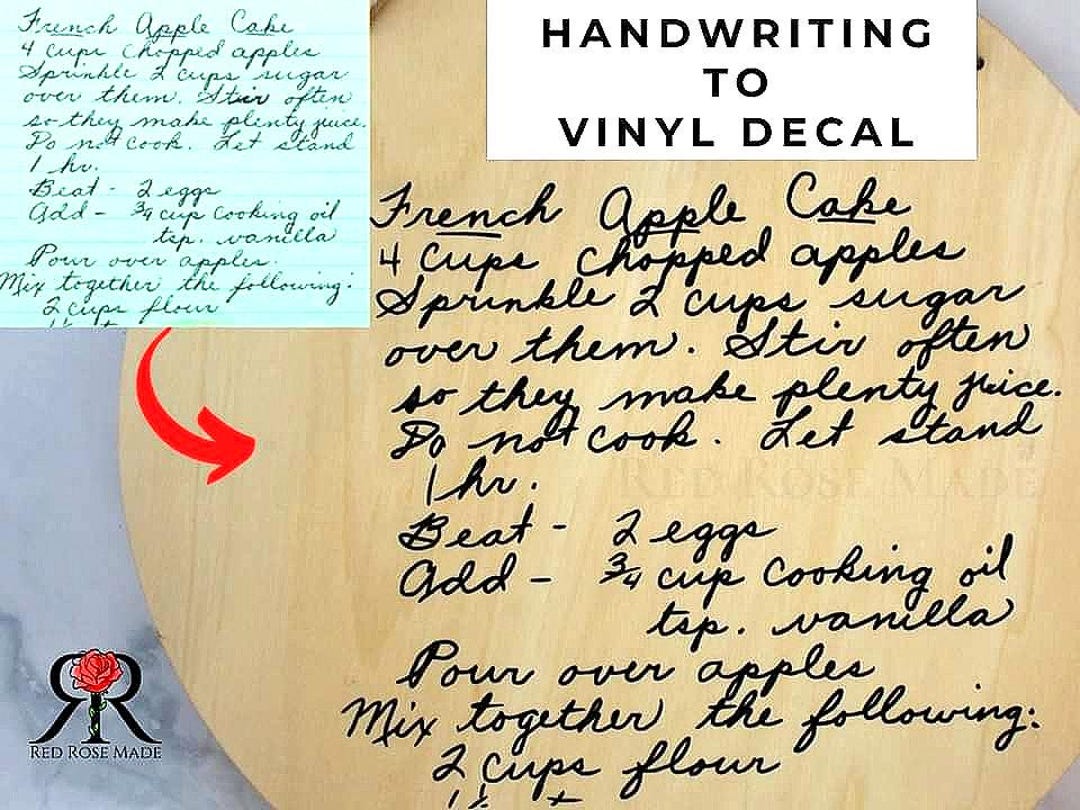 French Apple Cake
4 cups chopped apples
Sprinkle 2 cups sugar
over them. Stir often
so they make plenty juice.
Do not cook. Let stand
1 hr.
Beat - 2 eggs
Add - 3/4 cup cooking oil
tsp. vanilla
Pour over apples.
Mix together the following:
2 cups flour
HANDWRITING
TO
VINYL DECAL
French Apple Cake
4 cups chopped apples
Sprinkle 2 cups sugar
over them. Stir often
so they make plenty juice.
Do not cook. Let stand
1 hr.
Beat - 2 eggs
Add - 3/4 cup cooking oil
tsp. vanilla
Pour over apples
Mix together the following:
2 cups flour
RED ROSE MADE
RR
RED ROSE MADE